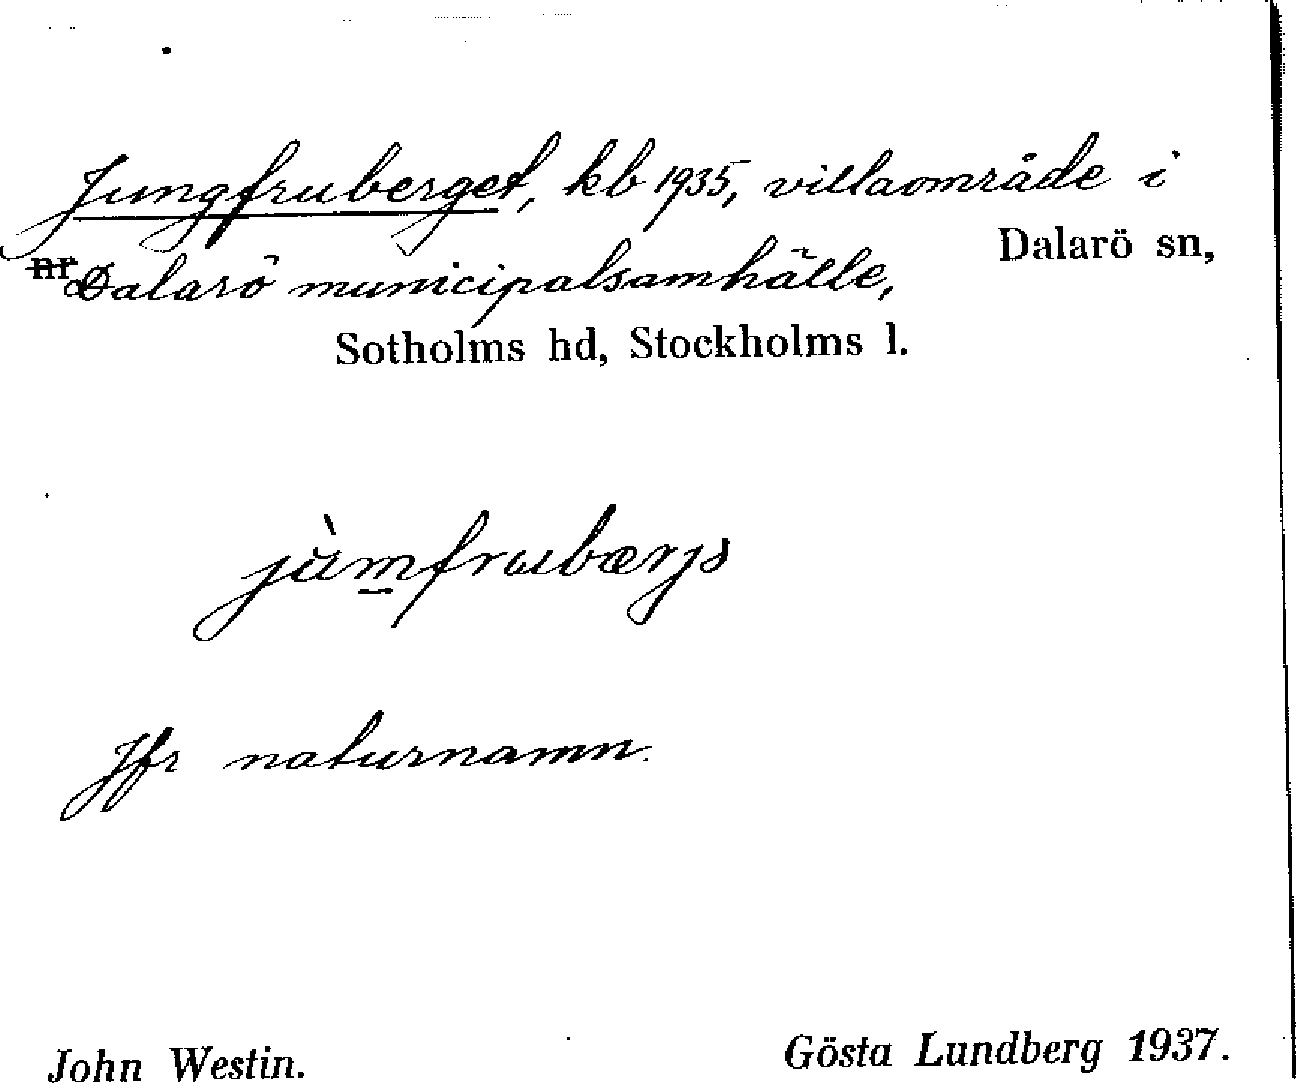 Jungfruberget, kb 1935, villaområde i
Dalarö sn,
nr Dalarö municipalsamhälle,
Sotholms hd, Stockholms l.
jùmfrubærjs
Jfr naturnamn.
John Westin.
Gösta Lundberg 1937.